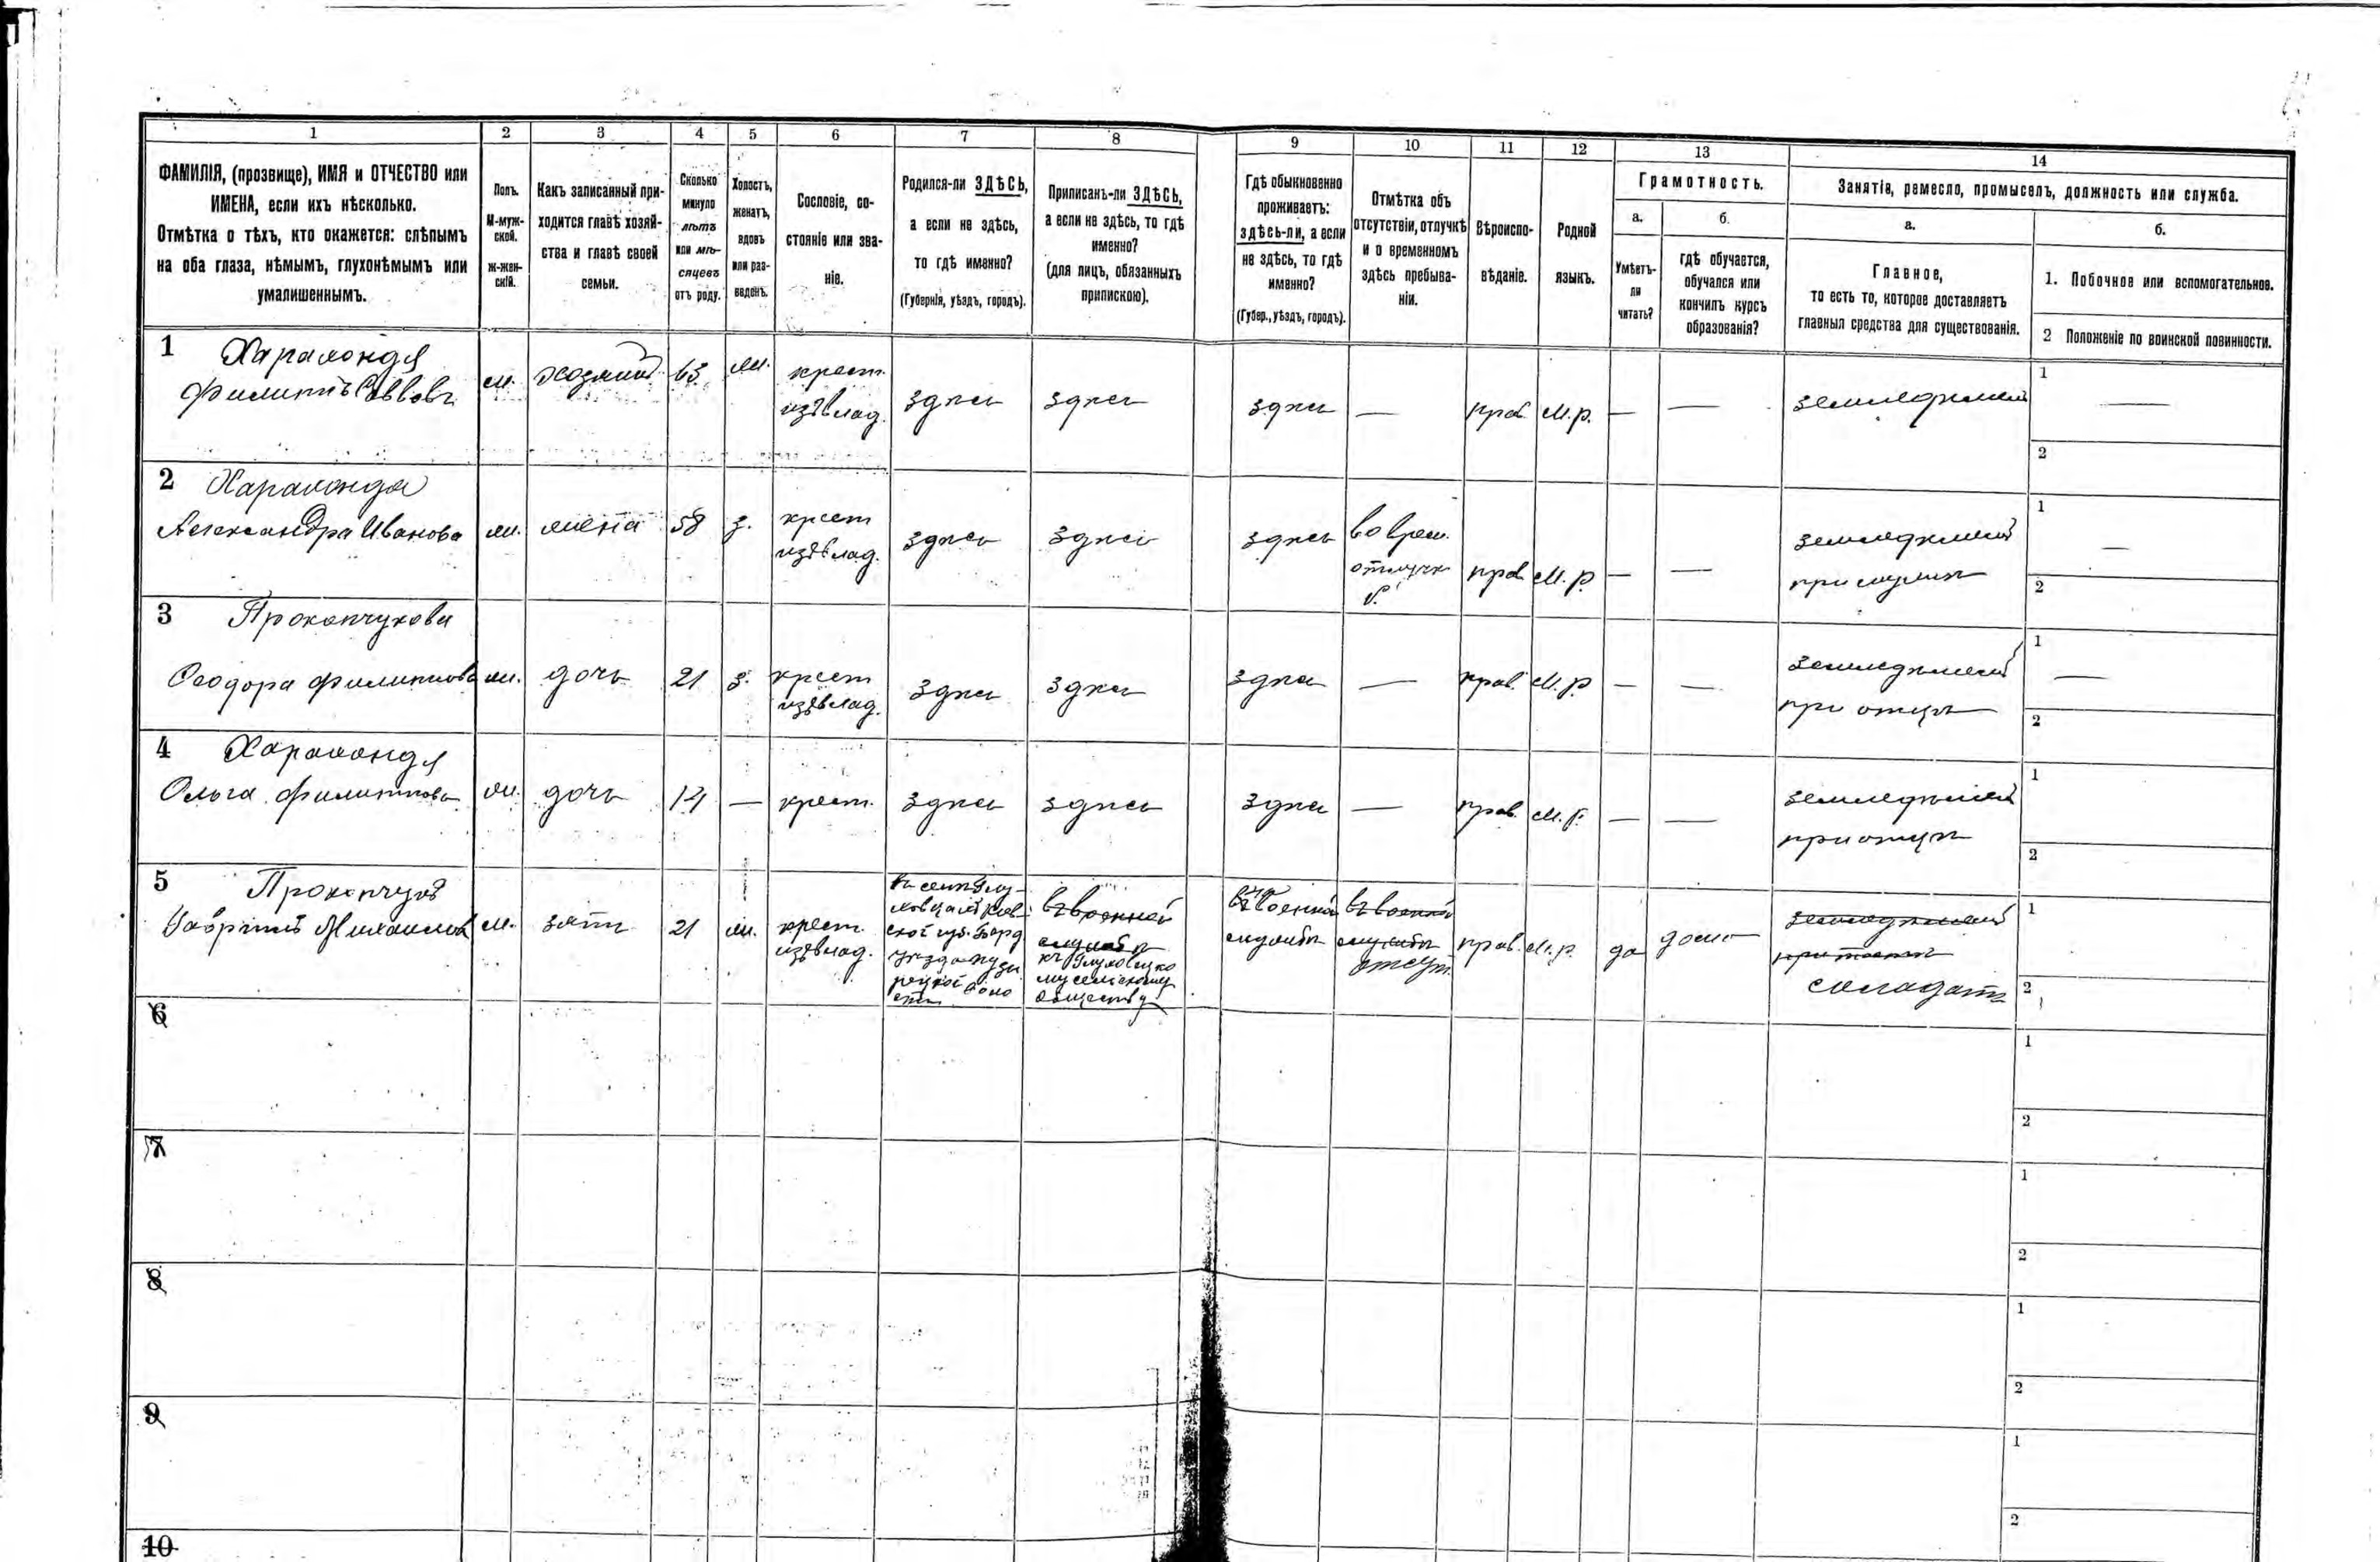 1 2 3 4 5 6 7 8 9 10 11 12 13 14
ФАМИЛІЯ, (прозвище), ИМЯ и ОТЧЕСТВО или
ИМЕНА, если ихъ нѣсколько.
Отмѣтка о тѣхъ, кто окажется: слѣпымъ
на оба глаза, нѣмымъ, глухонѣмымъ или
умалишеннымъ.
Полъ.
М-муж-
ской.
ж-жен-
скій.
Какъ записанный при-
ходится главѣ хозяй-
ства и главѣ своей
семьи.
Сколько
минуло
лѣтъ
или мѣ-
сяцевъ
отъ роду.
Холостъ,
женатъ,
вдовъ
или раз-
веденъ.
Сословіе, со-
стояніе или зва-
ніе.
Родился-ли ЗДѢСЬ,
а если не здѣсь,
то гдѣ именно?
(Губернія, уѣздъ, городъ).
Приписанъ-ли ЗДѢСЬ,
а если не здѣсь, то гдѣ
именно?
(для лицъ, обязанныхъ
припискою).
Гдѣ обыкновенно
проживаетъ:
здѣсь-ли, а если
не здѣсь, то гдѣ
именно?
(Губер., уѣздъ, городъ).
Отмѣтка объ
отсутствіи, отлучкѣ
и о временномъ
здѣсь пребыва-
ніи.
Вѣроиспо-
вѣданіе.
Родной
языкъ.
Грамотность.
а.
Умѣетъ-
ли
читать?
б.
гдѣ обучается,
обучался или
кончилъ курсъ
образованія?
Занятія, ремесло, промыселъ, должность или служба.
а.
Главное,
то есть то, которое доставляетъ
главныя средства для существованія.
б.
1. Побочное или вспомогательное.
2 Положеніе по воинской повинности.
1
Филиппъ Саввовъ м. хозяинъ 63 ж. крест. здѣсь здѣсь здѣсь — прав. м.р. — — земледѣлецъ 1 —
из влад.
2
2
Александра Иванова ж. жена 58 з. крест здѣсь здѣсь здѣсь во врем. прав м.р. — — земледѣлецъ 1 —
из влад. отлучк при мужѣ
2
3 Прокопчукова
Ѳеодора Филиппова ж. дочь 21 з. крест здѣсь здѣсь здѣсь — прав. м.р. — — земледѣлецъ 1 —
из влад. при отцѣ
2
4
Ольга Филиппова ж. дочь 14 — крест. здѣсь здѣсь здѣсь — прав. м.р. — — земледѣлецъ 1
при отцѣ
2
5 Прокопчукъ
Гавріилъ Михаиловъ м. зять 21 ж. крест. въ военной въ военной въ военной прав. м.р. да дома земледѣлецъ 1
из влад. службѣ службѣ службѣ при тестѣ
отсут. солдатъ 2
обществу
6
1
2
7
1
2
8
1
2
9
1
2
10